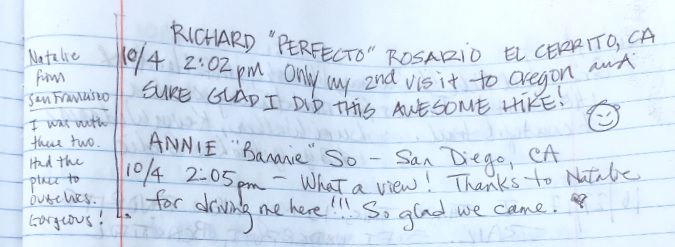 RICHARD "PERFECTO" ROSARIO EL CERRITO, CA
10/4 2:02pm Only my 2nd visit to Oregon and
SURE GLAD I DID THIS AWESOME HIKE!
ANNIE "Bananie" So - San Diego, CA
10/4 2:05pm - What a view! Thanks to Natalie
for driving me here!!! So glad we came.
Natalie
from
San Francisco
I was with
these two.
Had the
place to
ourselves.
Gorgeous!